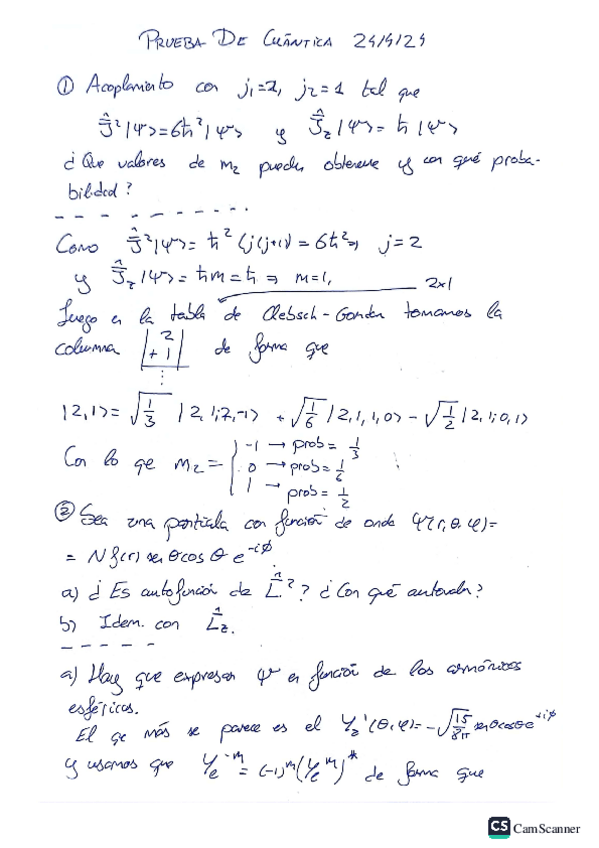 PRUEBA DE CUÁNTICA 24/4/24
① Acoplamiento con j₁=2, j₂=1 tal que
Ĵ²|ψ>=6ħ²|ψ> y Ĵz|ψ>=ħ|ψ>
¿Que valores de m₂ pueden obtenerse y con qué proba-
bilidad?
Como Ĵ²|ψ>=ħ²(j(j+1)=6ħ² ⇒ j=2
y Ĵz|ψ>=ħm=ħ ⇒ m=1,
2x1
luego en la tabla de Clebsch-Gordan tomamos la
columna |2 +1| de forma que
⋮
|2,1>=√1/3 |2,1;2,-1> +√1/6 |2,1,1,0> -√1/2 |2,1;0,1>
Con lo que m₂= { -1 → prob= 1/3
0 → prob= 1/6
1 → prob= 1/2
② Sea una partícula con función de onda Ψ(r,θ,φ)=
= N f(r) senθ cosθ e^-iφ
a) ¿Es autofunción de L̂²? ¿Con qué autovalor?
b) Idem. con L̂z.
a) Hay que expresar ψ en función de los armónicos
esféricos.
El qe más se parece es el Y₂¹(θ,φ)=-√15/8π senθcosθe^+iφ
y usamos que Yₑ^-m = (-1)^m(Yₑ^m)* de forma que
CS CamScanner